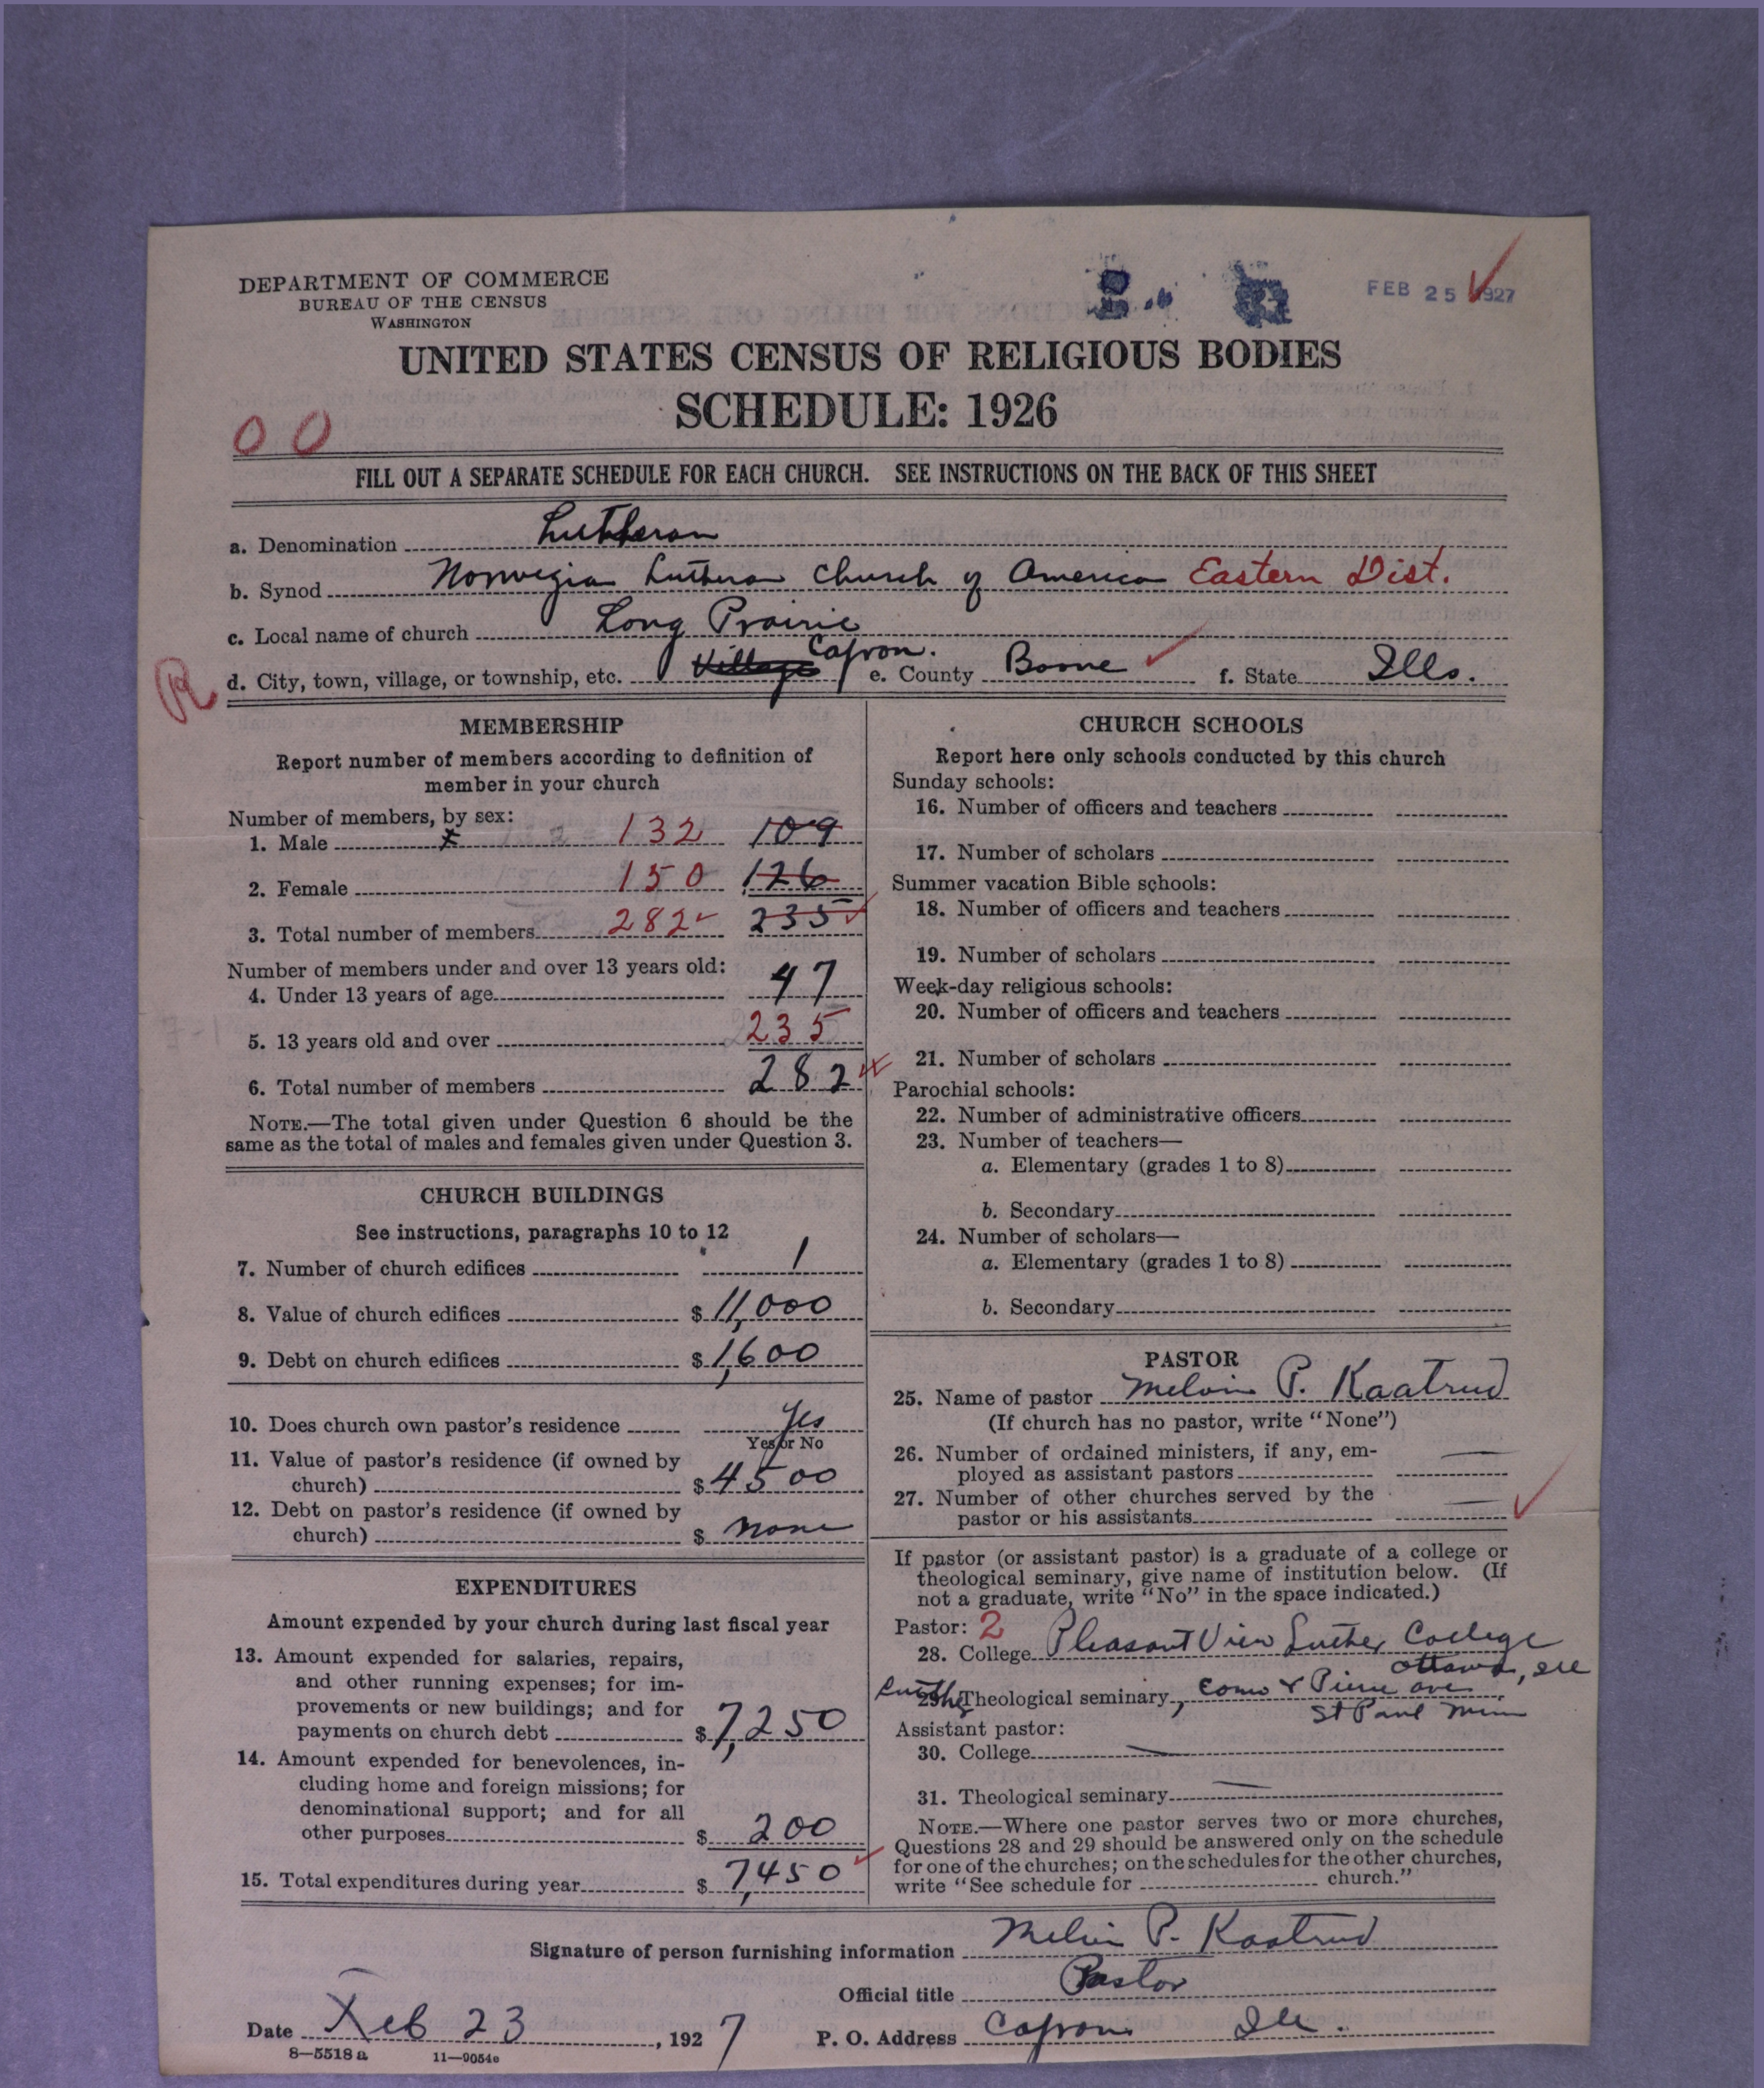 DEPARTMENT OF COMMERCE
BUREAU OF THE CENSUS
WASHINGTON
FEB 25 1927
UNITED STATES CENSUS OF RELIGIOUS BODIES
SCHEDULE: 1926
00
FILL OUT A SEPARATE SCHEDULE FOR EACH CHURCH. SEE INSTRUCTIONS ON THE BACK OF THIS SHEET
a. Denomination Lutheran
b. Synod Norwegian Lutheran Church of America Eastern Dist.
c. Local name of church Long Prairie
R
d. City, town, village, or township, etc. Village Capron. e. County Boone f. State Ills.
MEMBERSHIP
Report number of members according to definition of
member in your church
Number of members, by sex:
1. Male x 132 109
2. Female 150 126
3. Total number of members 282 235
Number of members under and over 13 years old:
4. Under 13 years of age 47
5. 13 years old and over 235
6. Total number of members 282
NOTE.—The total given under Question 6 should be the
same as the total of males and females given under Question 3.
CHURCH BUILDINGS
See instructions, paragraphs 10 to 12
7. Number of church edifices 1
8. Value of church edifices $ 11,000
9. Debt on church edifices $ 1,600
10. Does church own pastor's residence Yes
Yes or No
11. Value of pastor's residence (if owned by
church) $ 4500
12. Debt on pastor's residence (if owned by
church) $ none
EXPENDITURES
Amount expended by your church during last fiscal year
13. Amount expended for salaries, repairs,
and other running expenses; for im-
provements or new buildings; and for
payments on church debt $ 7,250
14. Amount expended for benevolences, in-
cluding home and foreign missions; for
denominational support; and for all
other purposes $ 200
15. Total expenditures during year $ 7,450
CHURCH SCHOOLS
Report here only schools conducted by this church
Sunday schools:
16. Number of officers and teachers
17. Number of scholars
Summer vacation Bible schools:
18. Number of officers and teachers
19. Number of scholars
Week-day religious schools:
20. Number of officers and teachers
21. Number of scholars
Parochial schools:
22. Number of administrative officers
23. Number of teachers—
a. Elementary (grades 1 to 8)
b. Secondary
24. Number of scholars—
a. Elementary (grades 1 to 8)
b. Secondary
PASTOR
25. Name of pastor Melvin P. Kaatrud
(If church has no pastor, write "None")
26. Number of ordained ministers, if any, em-
ployed as assistant pastors —
27. Number of other churches served by the
pastor or his assistants —
If pastor (or assistant pastor) is a graduate of a college or
theological seminary, give name of institution below. (If
not a graduate, write "No" in the space indicated.)
Pastor: 2
28. College Pleasant View Luther College
Ottawa, Ill
Luther 29. Theological seminary, Como & Pierce ave
St Paul Minn
Assistant pastor:
30. College —
31. Theological seminary —
NOTE.—Where one pastor serves two or more churches,
Questions 28 and 29 should be answered only on the schedule
for one of the churches; on the schedules for the other churches,
write "See schedule for church."
Signature of person furnishing information Melvin P. Kaatrud
Official title Pastor
Date Feb 23, 1927 P. O. Address Capron Ill.
8—5518 a 11—9054e